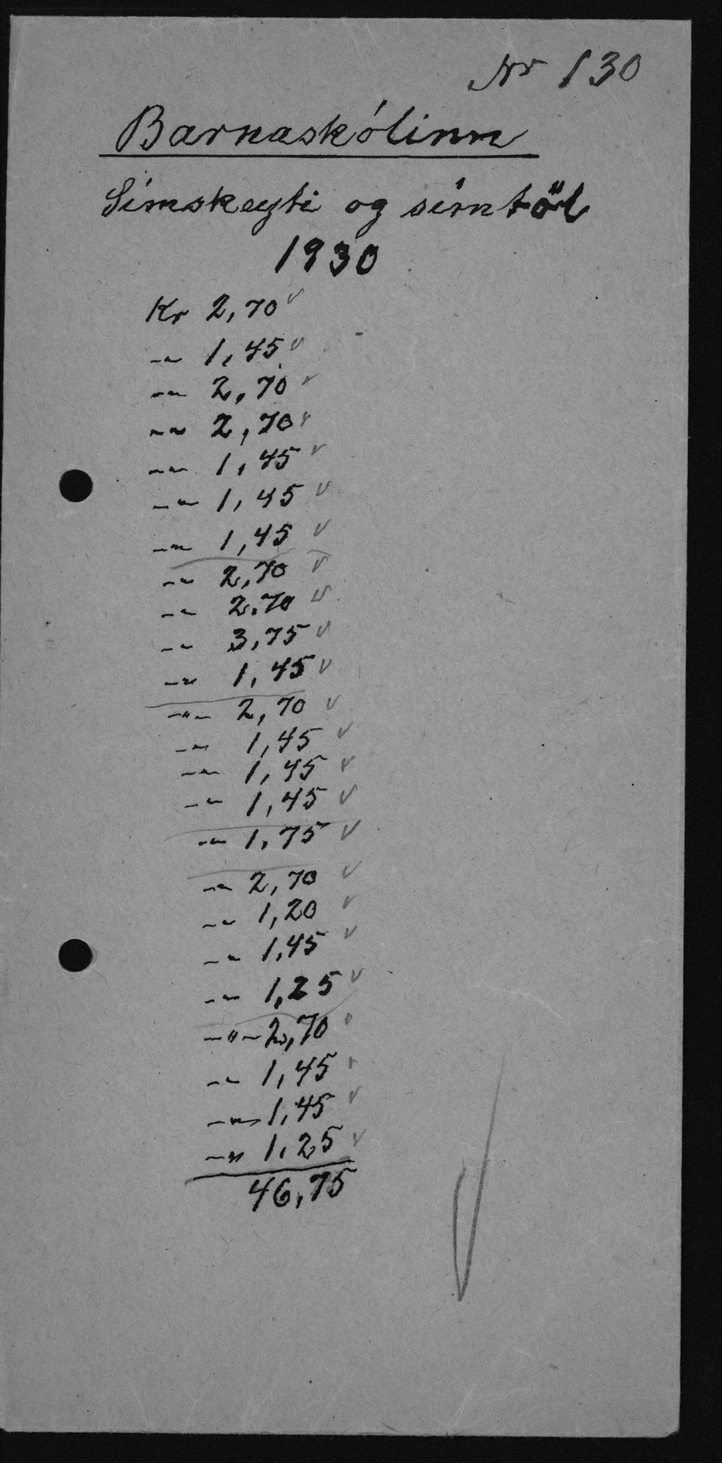 Nr 130
Barnaskólinn
Símskeyti og símtöl
1930
Kr 2,70 v
-"- 1,45 v
-"- 2,70 v
-"- 2,70 v
-"- 1,45 v
-"- 1,45 v
-"- 1,45 v
-"- 2,70 v
-"- 2.70 v
-"- 3,75 v
-"- 1,45 v
-"- 2,70 v
-"- 1,45 v
-"- 1,45 v
-"- 1,45 v
-"- 1.75 v
-"- 2,70 v
-"- 1,20 v
-"- 1,45 v
-"- 1,25 v
-"- 2,70 v
-"- 1,45 v
-"- 1,45 v
-"- 1.25 v
46,75